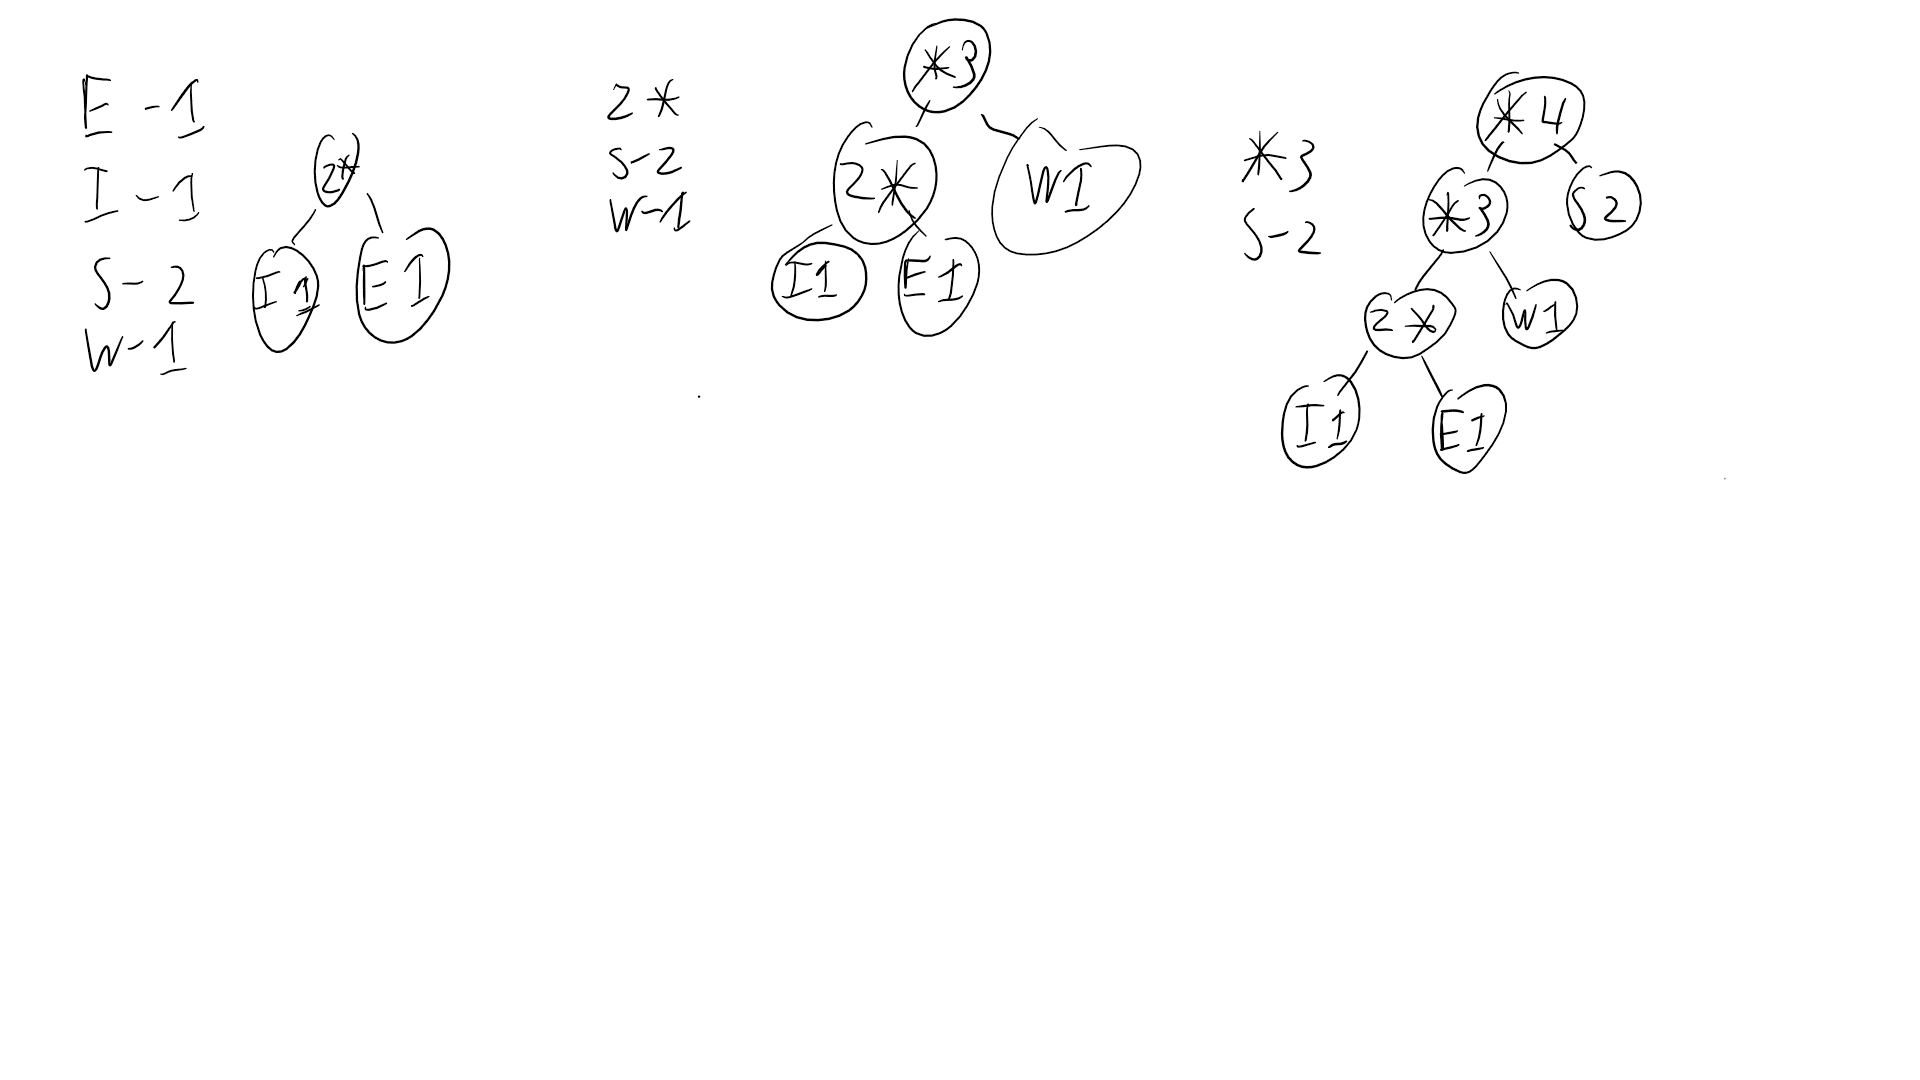 E -1
I -1
S - 2
W-1
2*
I 1
E 1
2*
S-2
W-1
*3
2*
W1
I1
E1
*3
S-2
*4
*3
S 2
2*
W1
I1
E1